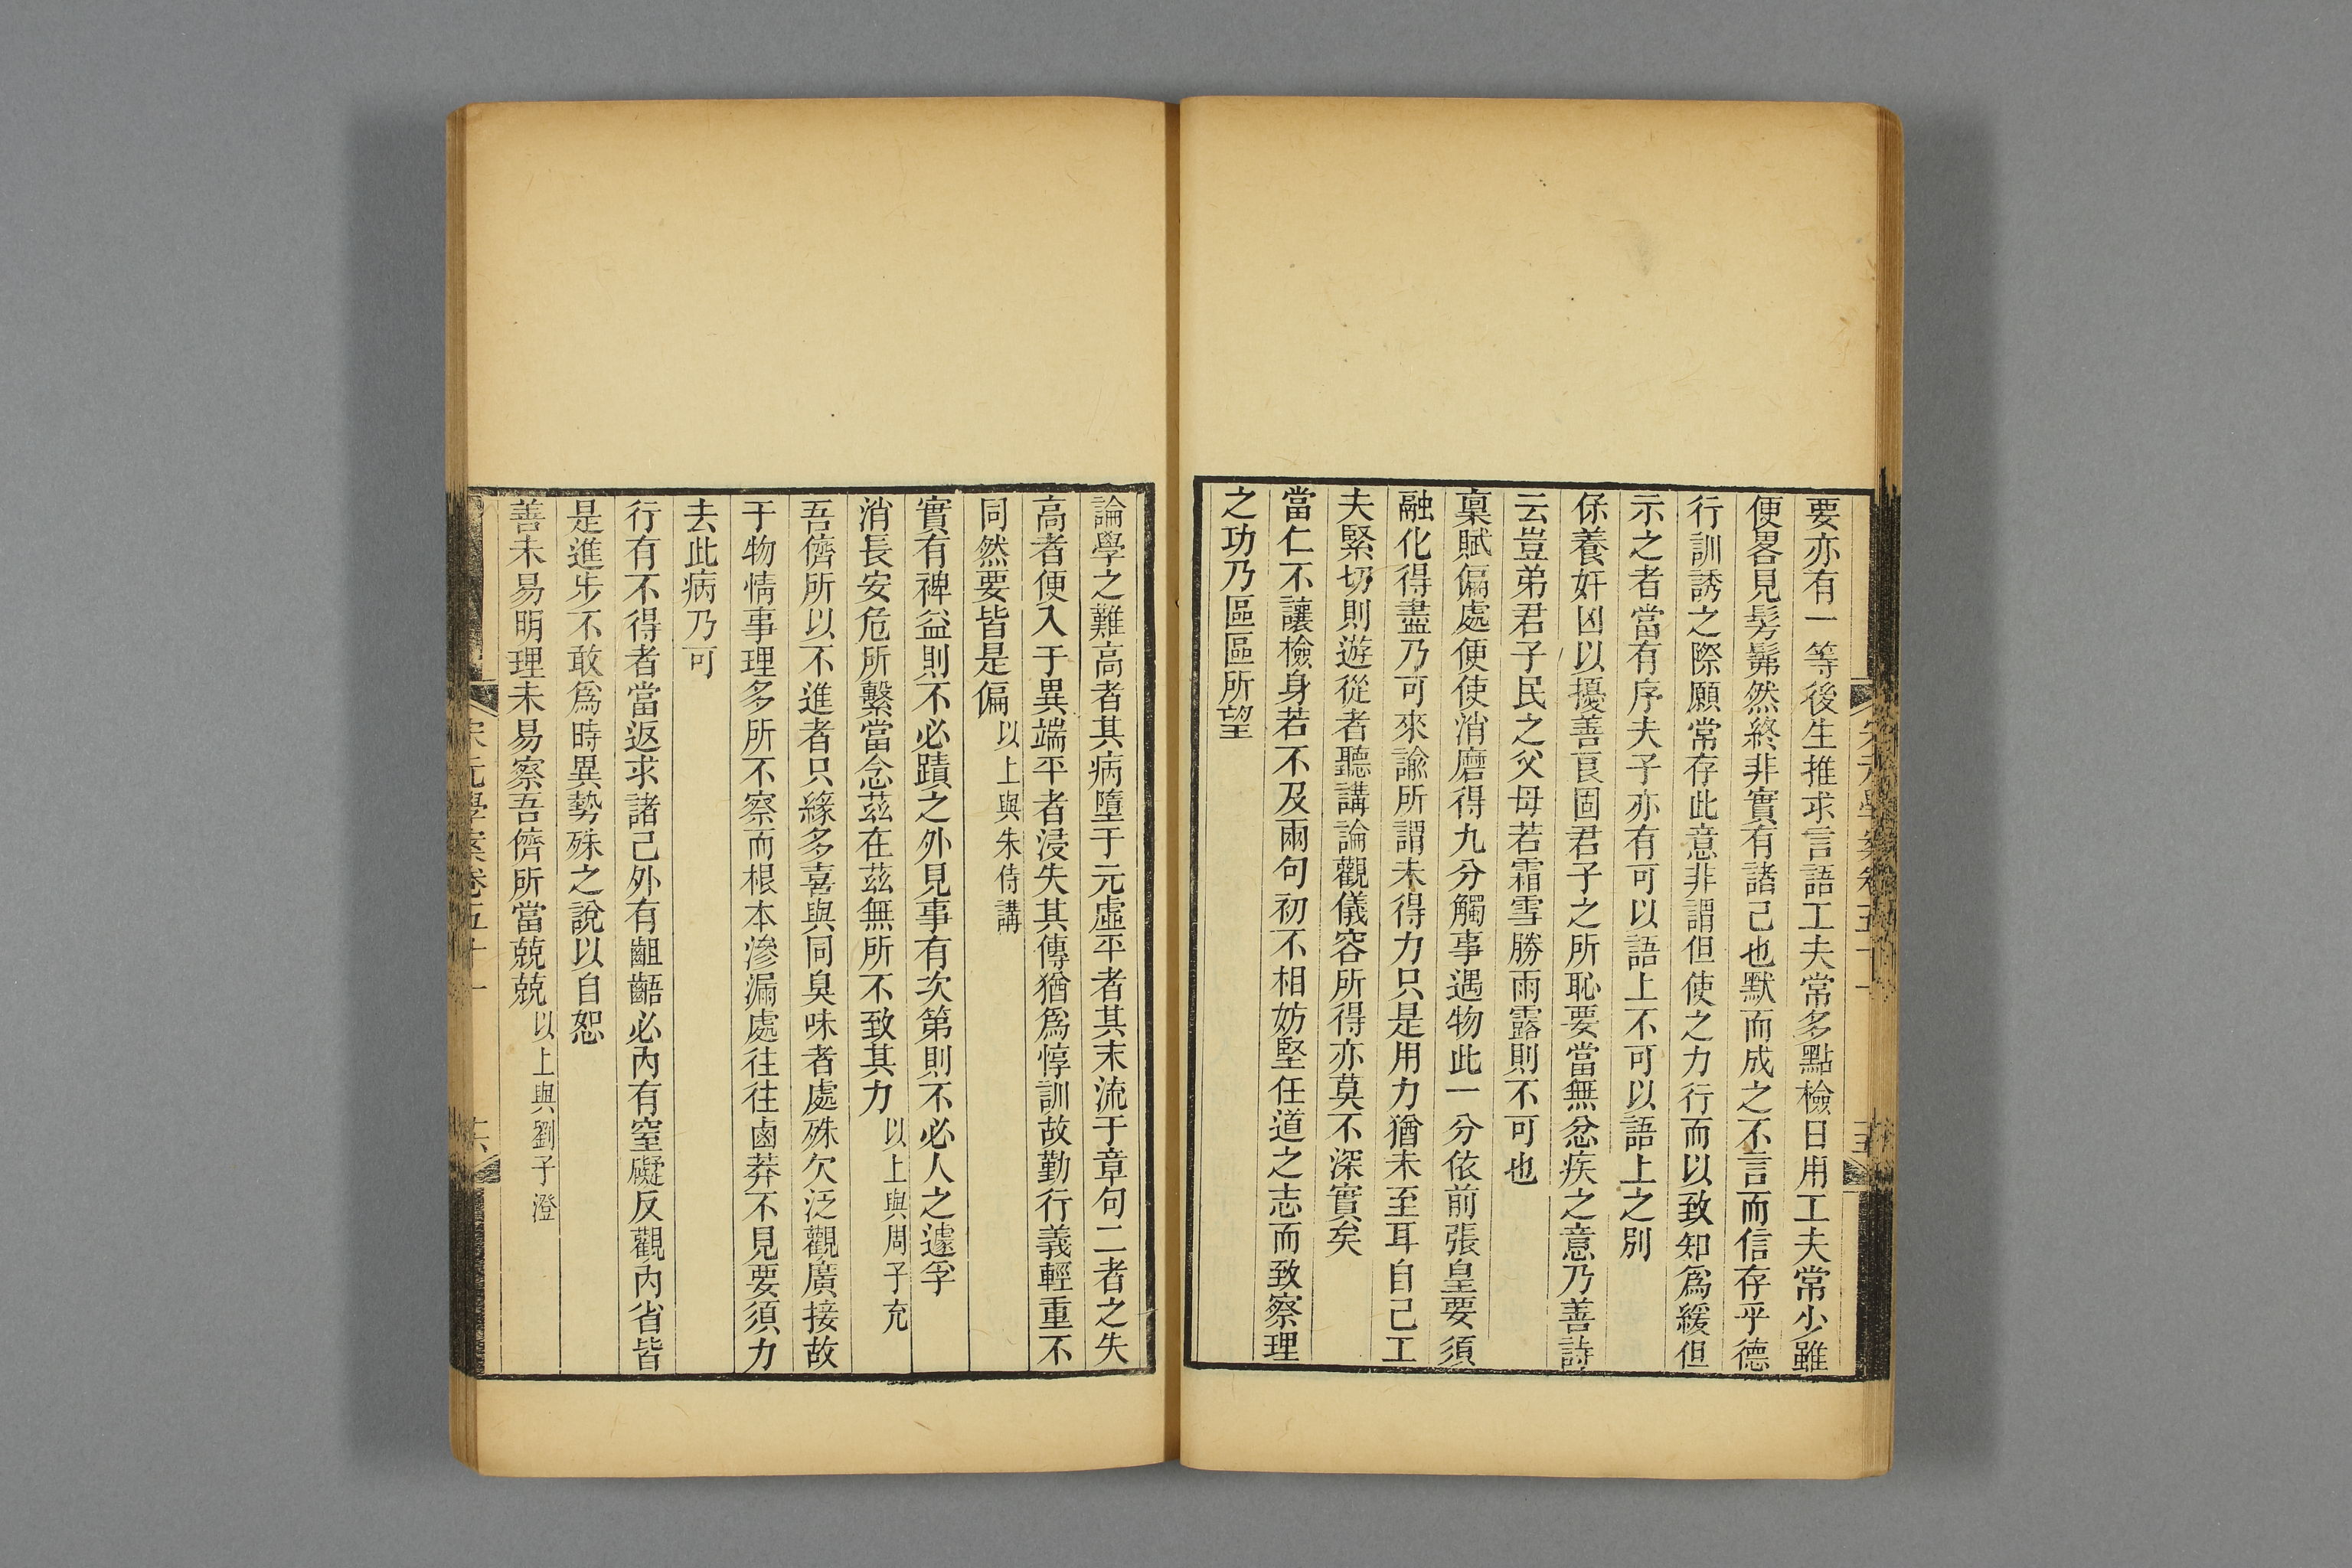 要亦有一等後生推求言語工夫常多點檢日用工夫常少雖
便畧見髣髴然終非實有諸己也默而成之不言而信存乎德
行訓誘之際願常存此意非謂但使之力行而以致知爲緩但
示之者當有序夫子亦有可以語上不可以語上之別
係養奸凶以擾善良固君子之所恥要當無忿疾之意乃善詩
云豈弟君子民之父母若霜雪勝雨露則不可也
稟賦偏處便使消磨得九分觸事遇物此一分依前張皇要須
融化得盡乃可來諭所謂未得力只是用力猶未至耳自己工
夫緊切則遊從者聽講論觀儀容所得亦莫不深實矣
當仁不讓檢身若不及兩句初不相妨堅任道之志而致察理
之功乃區區所望
論學之難高者其病墮于元虛平者其末流于章句二者之失
高者便入于異端平者浸失其傳猶爲惇訓故勤行義輕重不
同然要皆是偏以上與朱侍講
實有裨益則不必蹟之外見事有次第則不必人之遽孚
消長安危所繫當念茲在茲無所不致其力以上與周子充
吾儕所以不進者只緣多喜與同臭味者處殊欠泛觀廣接故
于物情事理多所不察而根本滲漏處往往鹵莽不見要須力
去此病乃可
行有不得者當返求諸己外有齟齬必內有窒礙反觀內省皆
是進步不敢爲時異勢殊之說以自恕
善未易明理未易察吾儕所當兢兢以上與劉子澄
宋元學案卷五十一